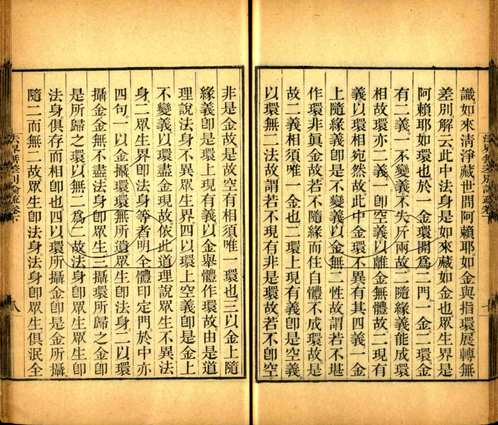 識如來清淨藏世間阿賴耶如金與指環展轉無
差別解云此中法身是如來藏如金也眾生界是
阿賴耶如環也於一金環開為二門一金二環金
有二義一不變義以不失斤兩故二隨緣義能成環
相故環亦二義一體空義以離金無體故二現有
義以環相宛然故此中金環不異有其四義一金
上隨緣義即是不變義以金無二性故謂若不堪
作環非真金故若不隨緣而住自體不成環故是
故二義相須唯一金也二環上現有義即是空義
以環無二法故謂若不現有非是環故若不即空
非是金故是故空有相須唯一環也三以金上隨
緣義即是環上現有義以金舉體作環故由是道
理說法身不異眾生界四以環上空義即是金上
不變義以環盡金現故依此道理說眾生不異法
身二眾生界即法身等者明全體印定門於中亦
四句一以金攝環環無所遺眾生即法身二以環
攝金金無不盡法身即眾生三攝環所歸之金即
是所歸之環以無二為二故法身即眾生眾生即
法身俱存而相即也四以環所攝金即是金所攝
隨二而無二故眾生即法身法身即眾生俱泯全
八